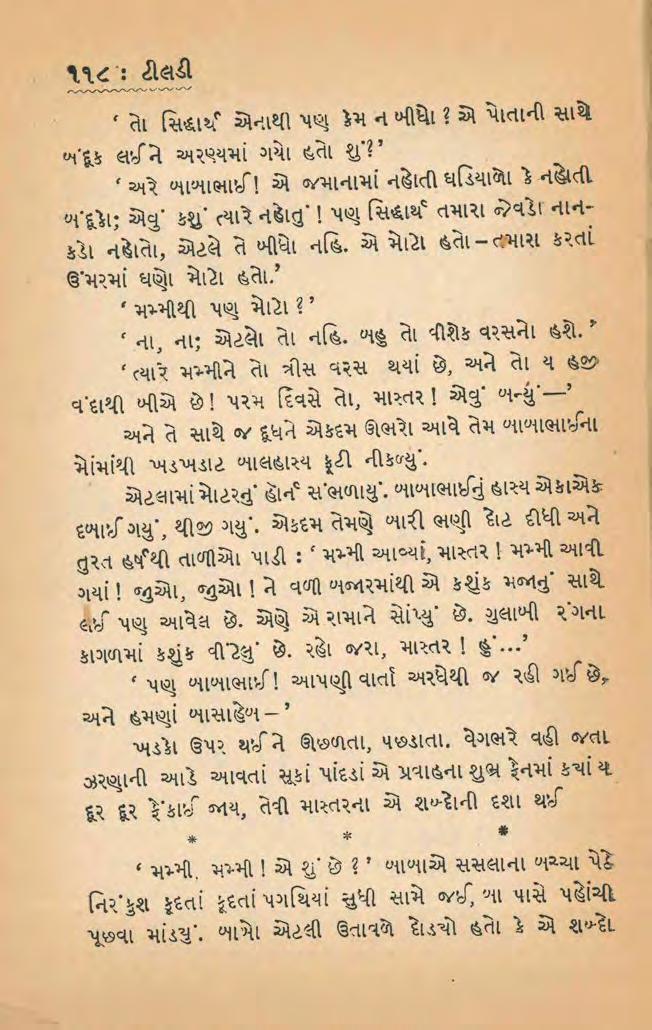 ૧૧૮ : ટીલડી
‘ તો સિદ્ધાર્થ એનાથી પણ કેમ ન બીધો ? એ પોતાની સાથે
બંદૂક લઈને અરણ્યમાં ગયો હતો શું?’
‘ અરે બાબાભાઈ! એ જમાનામાં નહોતી ઘડિયાળો કે નહોતી
બંદૂકો; એવું કશું ત્યારે નહોતું ! પણ સિદ્ધાર્થ તમારા જેવડો નાન-
કડો નહોતો, એટલે તે બીધો નહિ. એ મોટો હતો – તમારા કરતાં
ઉંમરમાં ઘણો મોટો હતો.’
‘ મમ્મીથી પણ મોટો ?’
‘ ના, ના; એટલો તો નહિ. બહુ તો વીશેક વરસનો હશે.’
‘ ત્યારે મમ્મીને તો ત્રીસ વરસ થયાં છે, અને તો ય હજી
વંદાથી બીએ છે! પરમ દિવસે તો, માસ્તર! એવું બન્યું—’
અને તે સાથે જ દૂધને એકદમ ઊભરો આવે તેમ બાબાભાઈના
મોંમાંથી ખડખડાટ બાલહાસ્ય ફૂટી નીકળ્યું.
એટલામાં મોટરનું હોર્ન સંભળાયું. બાબાભાઈનું હાસ્ય એકાએક
દબાઈ ગયું, થીજી ગયું. એકદમ તેમણે બારી ભણી દોટ દીધી અને
તુરત હર્ષથી તાળીઓ પાડી : ‘ મમ્મી આવ્યાં, માસ્તર ! મમ્મી આવી
ગયાં ! જુઓ, જુઓ ! ને વળી બજારમાંથી એ કશુંક મજાનું સાથે
લઈ પણ આવેલ છે. એણે એ રામાને સોંપ્યું છે. ગુલાબી રંગના
કાગળમાં કશુંક વીંટેલું છે. રહો જરા, માસ્તર ! હું...’
‘ પણ બાબાભાઈ! આપણી વાર્તા અરધેથી જ રહી ગઈ છે,
અને હમણાં બાસાહેબ – ’
ખડકો ઉપર થઈને ઊછળતા, પછડાતા. વેગભરે વહી જતા
ઝરણાની આડે આવતાં સૂકાં પાંદડાં એ પ્રવાહના શુભ્ર ફેનમાં કયાં ય
દૂર દૂર ફેંકાઈ જાય, તેવી માસ્તરના એ શબ્દોની દશા થઈ
* * *
‘ મમ્મી. મમ્મી ! એ શું છે ? ’ બાબાએ સસલાના બચ્ચા પેઠે
નિરંકુશ કૂદતાં કૂદતાં પગથિયાં સુધી સામે જઈ, બા પાસે પહોંચી
પૂછવા માંડયું. બાબો એટલી ઉતાવળે દોડયો હતો કે એ શબ્દો